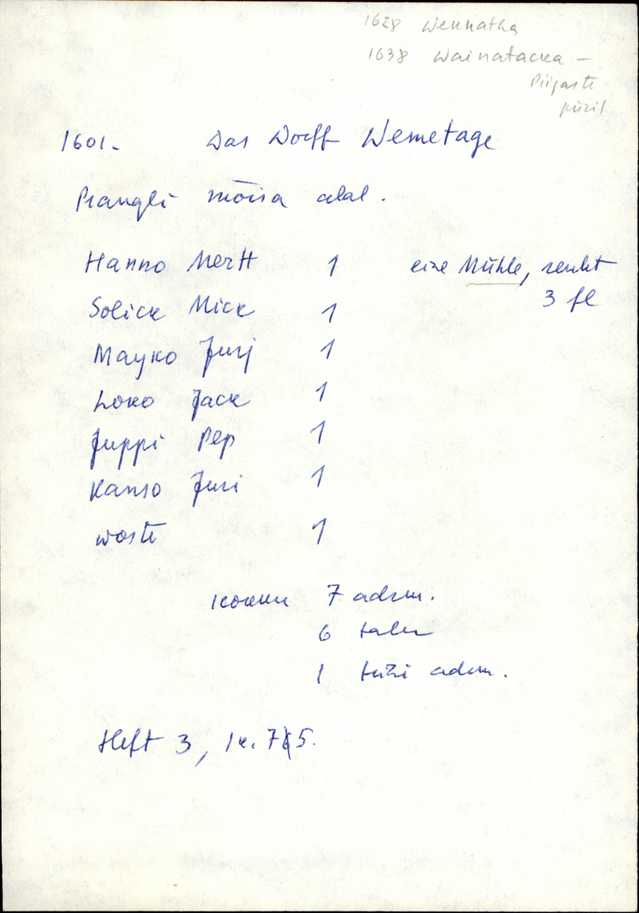 1628 Wennatka
1638 Wainatacka –
Piigaste
piiril
1601. Das Dorff Wemetage
Prangli mõisa alal.
Hanno Mertt 1 eine Mühle, renht
3 fl
Solick Mick 1
Mayko Jurj 1
Loko Jack 1
Juppi Pep 1
Kanso Juri 1
woste 1
kokku 7 adrm.
6 talu
1 tühi adrm.
Heft 3, lk. 75.